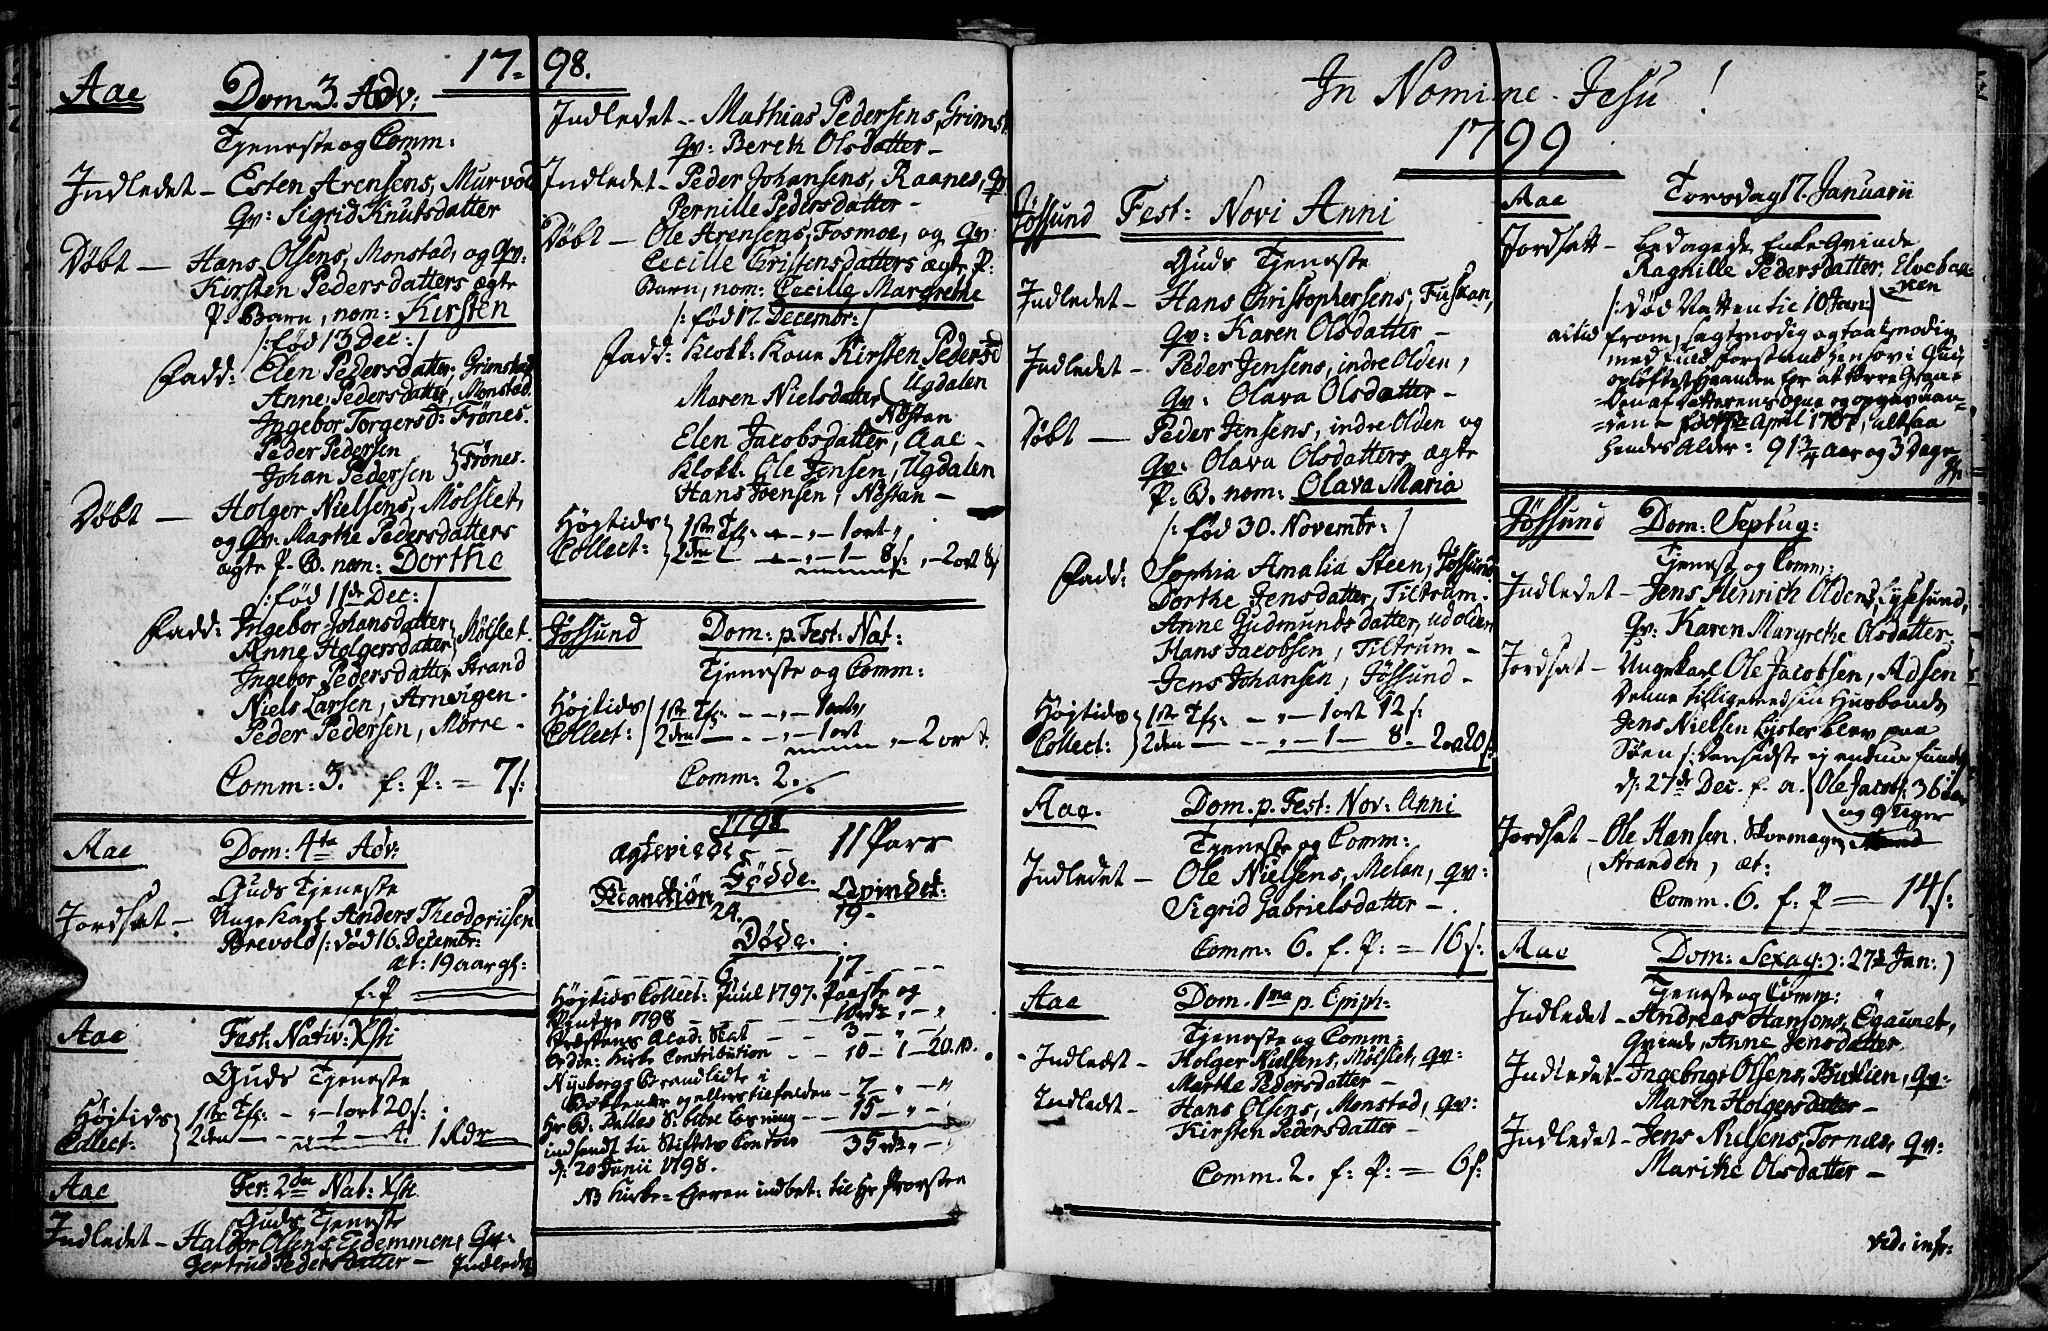 17 98.
Aae Dom 3. Adv:
Tjeneste og Comm:
Indledet – Esten Arensens, Murvold
qv: Sigrid Knutsdatter
Døbt – Hans Olsens, Monstad, og qv:
Kirsten Pedersdatters ægte
P. Barn, nom: Kirsten
/: fød 13 Dec: /
Fadd: Elen Pedersdatter, Grimstad
Anne Pedersdatter, Monstad.
Ingebor Torgersd: Frønes.
Peder Pedersen
Johan Pedersen } Frønes.
Døbt – Holger Nielsens, Mølslet,
og qv: Marthe Pedersdatters
ægte P. B. nom: Dorthe
/: fød 11de Dec: /
Fadd: Ingebor Johansdatter
Anne Holgersdatter } Mølslet.
Ingebor Pedersdatter Strand
Niels Larsen, Arnevigen.
Peder Pedersen, Mørre –
Comm: 3. f: P: = 7 s:
Aae Dom: 4ta Adv:
Guds Tjeneste
Jordsat – Unge Karl Anders Theodoriisen
Brevold /: død 16. Decembr:
æt: 19 aar gl:
f: P
Aae Fest: Nativ: Xsti
Guds Tjeneste
Højtids 1ste Tf: – „ – 1 ort 20 s:
Collect: 2den – – 2 – 4. 1 Rdr
Aae Fer: 2da Nat: Xsti
Guds Tjeneste
Indledet – Haldor Olsens Eidemmen, Qv:
Gertrud Pedersdatter – Indledet
Indledet – Mathias Pedersens, Grimst
qv: Bereth Olsdatter –
Indledet – Peder Johansens, Raanes, qv
Pernille Pedersdatter –
Døbt – Ole Arensens, Fosmoe, og qv:
Cecille Cristensdatters ægte P:
Barn, nom: Cecille Margrethe
/: fød 17. Decembr: /
Fadd: Klokk: Kone Kirsten Pedersd
Ugdalen
Maren Nielsdatter Nestan
Elen Jacobsdatter, Aae –
Klokk: Ole Jensen, Ugdalen
Hans Joensen, Nestan –
Højtids 1ste Tf: – „ – 1 ort „
Collect: 2den – „ – 1 – 8 s: „ – 2 ort 8 s
Jøssund Dom: p. Fest: Nat:
Tjeneste og Comm:
Højtids 1ste Tf: – – „ – 1 ort „
Collect: 2den – – „ – 1 ort „ – 2 ort.
Comm: 2.
1798
Ægteviede – 11 Pars
Fødde.
Mandkiøn. Qvindek:
24. 19 –
Døde.
6 17
Højtids Collect: Juul 1797. Paaske og
Pintze 1798 – – 10 rdr „ – „
Præstens Acad: Skat – – 3 – „ – „
Ordin: Kirke Contribution – – 10 – 1 – 20. 10.
Nyeborgs Brandlidte i
– 7 „ – „
15 – „ –
indsendt til Stiftets Contoir 35 rdr „ –
d: 20 Junii 1798.
NB Kirke = Eieren indbet: til Hr Provsten
In Nomine Jesu!
1799
Jøssund Fest: Novi Anni
Guds Tjeneste
Indledet – Hans Christophersens, Fuskan,
qv: Karen Olsdatter –
Indledet – Peder Jensens, indre Olden,
qv: Olava Olsdatter –
Døbt – Peder Jensens, indre Olden og
qv: Olava Olsdatters ægte
P: B. nom: Olava Maria
/: fød 30. Novembr: /
Fadd: Sophia Amalia Steen, Jøssund
Dorthe Jensdatter, Tiltrum –
Anne Gudmundsdatter, ud Olden
Hans Jacobsen, Tiltrum –
Jens Johansen, Jøssund –
Højtids 1ste Tf: – „ – 1 ort 12 s:
Collect: 2den – – „ – 1 – 8. 2 ort 20 s:
Aae. Dom. p. Fest: Nov: Anni
Tjeneste og Comm:
Indledet – Ole Nielsens, Melan, qv:
Sigrid Gabrielsdatter –
Comm: 6. f. P: = 16 s:
Aae Dom. 1ma p. Epiph:
Tjeneste og Comm:
Indledet – Holger Nielsens, Mølslet, qv:
Marthe Pedersdatter –
Indledt – Hans Olsens, Monstad, qv:
Kirsten Pedersdatter –
Comm. 2. f: P: = 6 s:
Aae Torsdag 17. Januarii
Jordsatt – bedagede Enke Qvinde
Ragnille Pedersdatter, Elvebak
ken
/: død Natten til 10 Jan: /
altid from, sagtmodig og taalmodig
April 1707, altsaa
hendes Alder: 91 3/4 Aar og 3 Dage
Jøssund Dom: Septug:
Tjeneste og Comm:
Indledet – Jens Henrich Oldens, Lysesund,
qv: Karen Margrethe Olsdatter
Jordsat – Ungekarl Ole Jacobsen, Adsen
denne tilligemed sin Husbonde
Jens Nielsen Lyster blev paa
Søen /: den sidste ej endnu funden
d: 27de Dec. f. a. / Ole Jacobs: 36 aar
og 9 Uger
Jordsat – Ole Hansen Skoemager,
Stranden, æt:
Comm. 6. f. P = 14 s:
Aae Dom: Sexag: ): 27de Jan: )
Tjeneste og Comm:
Indledet – Andreas Hansens, Egaunet,
qvinde, Anne Jensdatter
Indledet – Ingebrigt Olsens, Butlien, qv:
Maren Holgersdatter –
Indledet – Jens Nielsens, Tornæs, qv:
Marithe Olsdatter –
vid: infr: